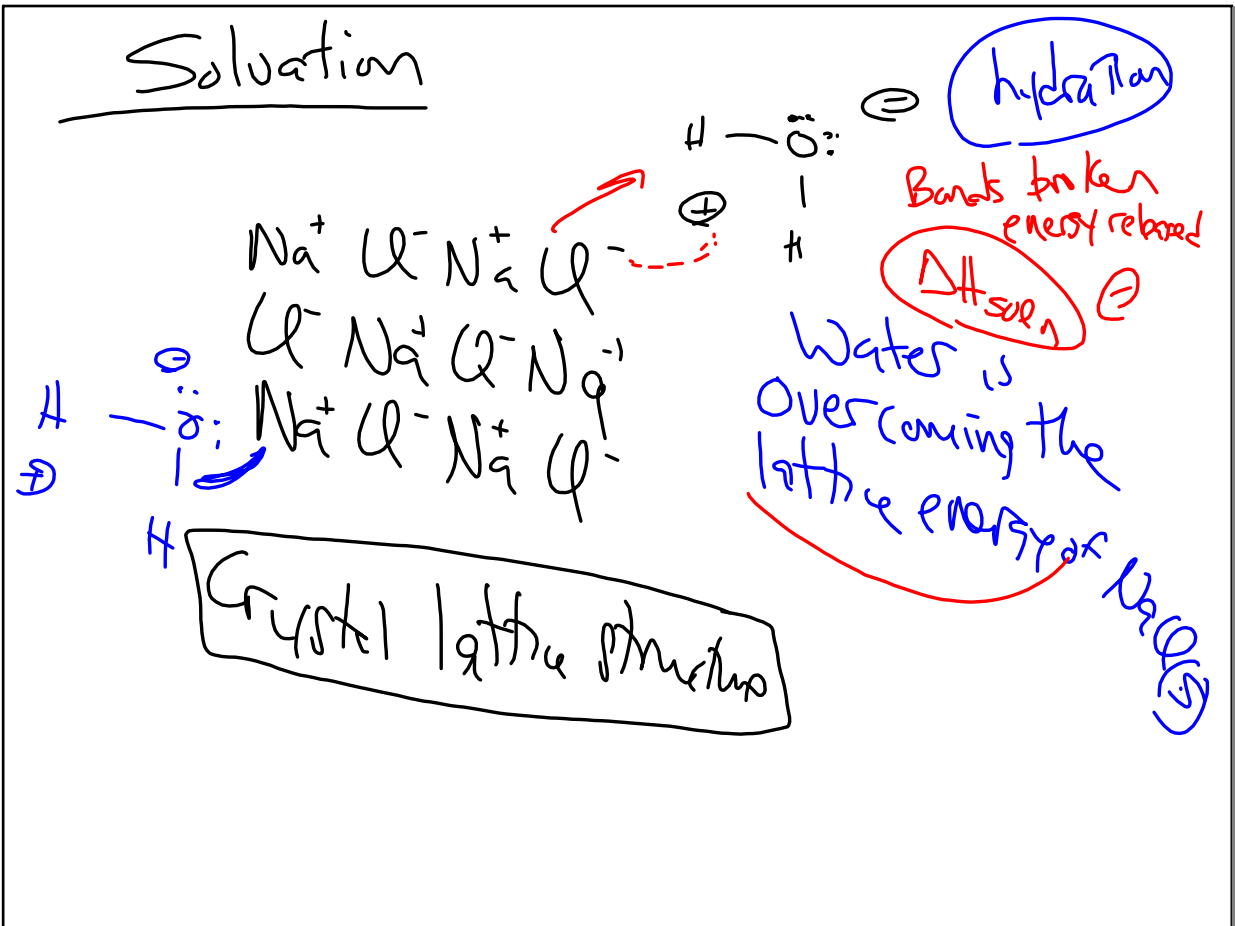 Solvation
hydration
H — Ö: ⊖
⊕
H
Bonds broken
energy released
ΔHsoln ⊖
Na⁺ Cl⁻ Na⁺ Cl⁻
Cl⁻ Na⁺ Cl⁻ Na⁺
Na⁺ Cl⁻ Na⁺ Cl⁻
⊖
H — Ö:
⊕
H
Water is
Overcoming the
lattice energy of NaCl(s)
Crystal lattice structure